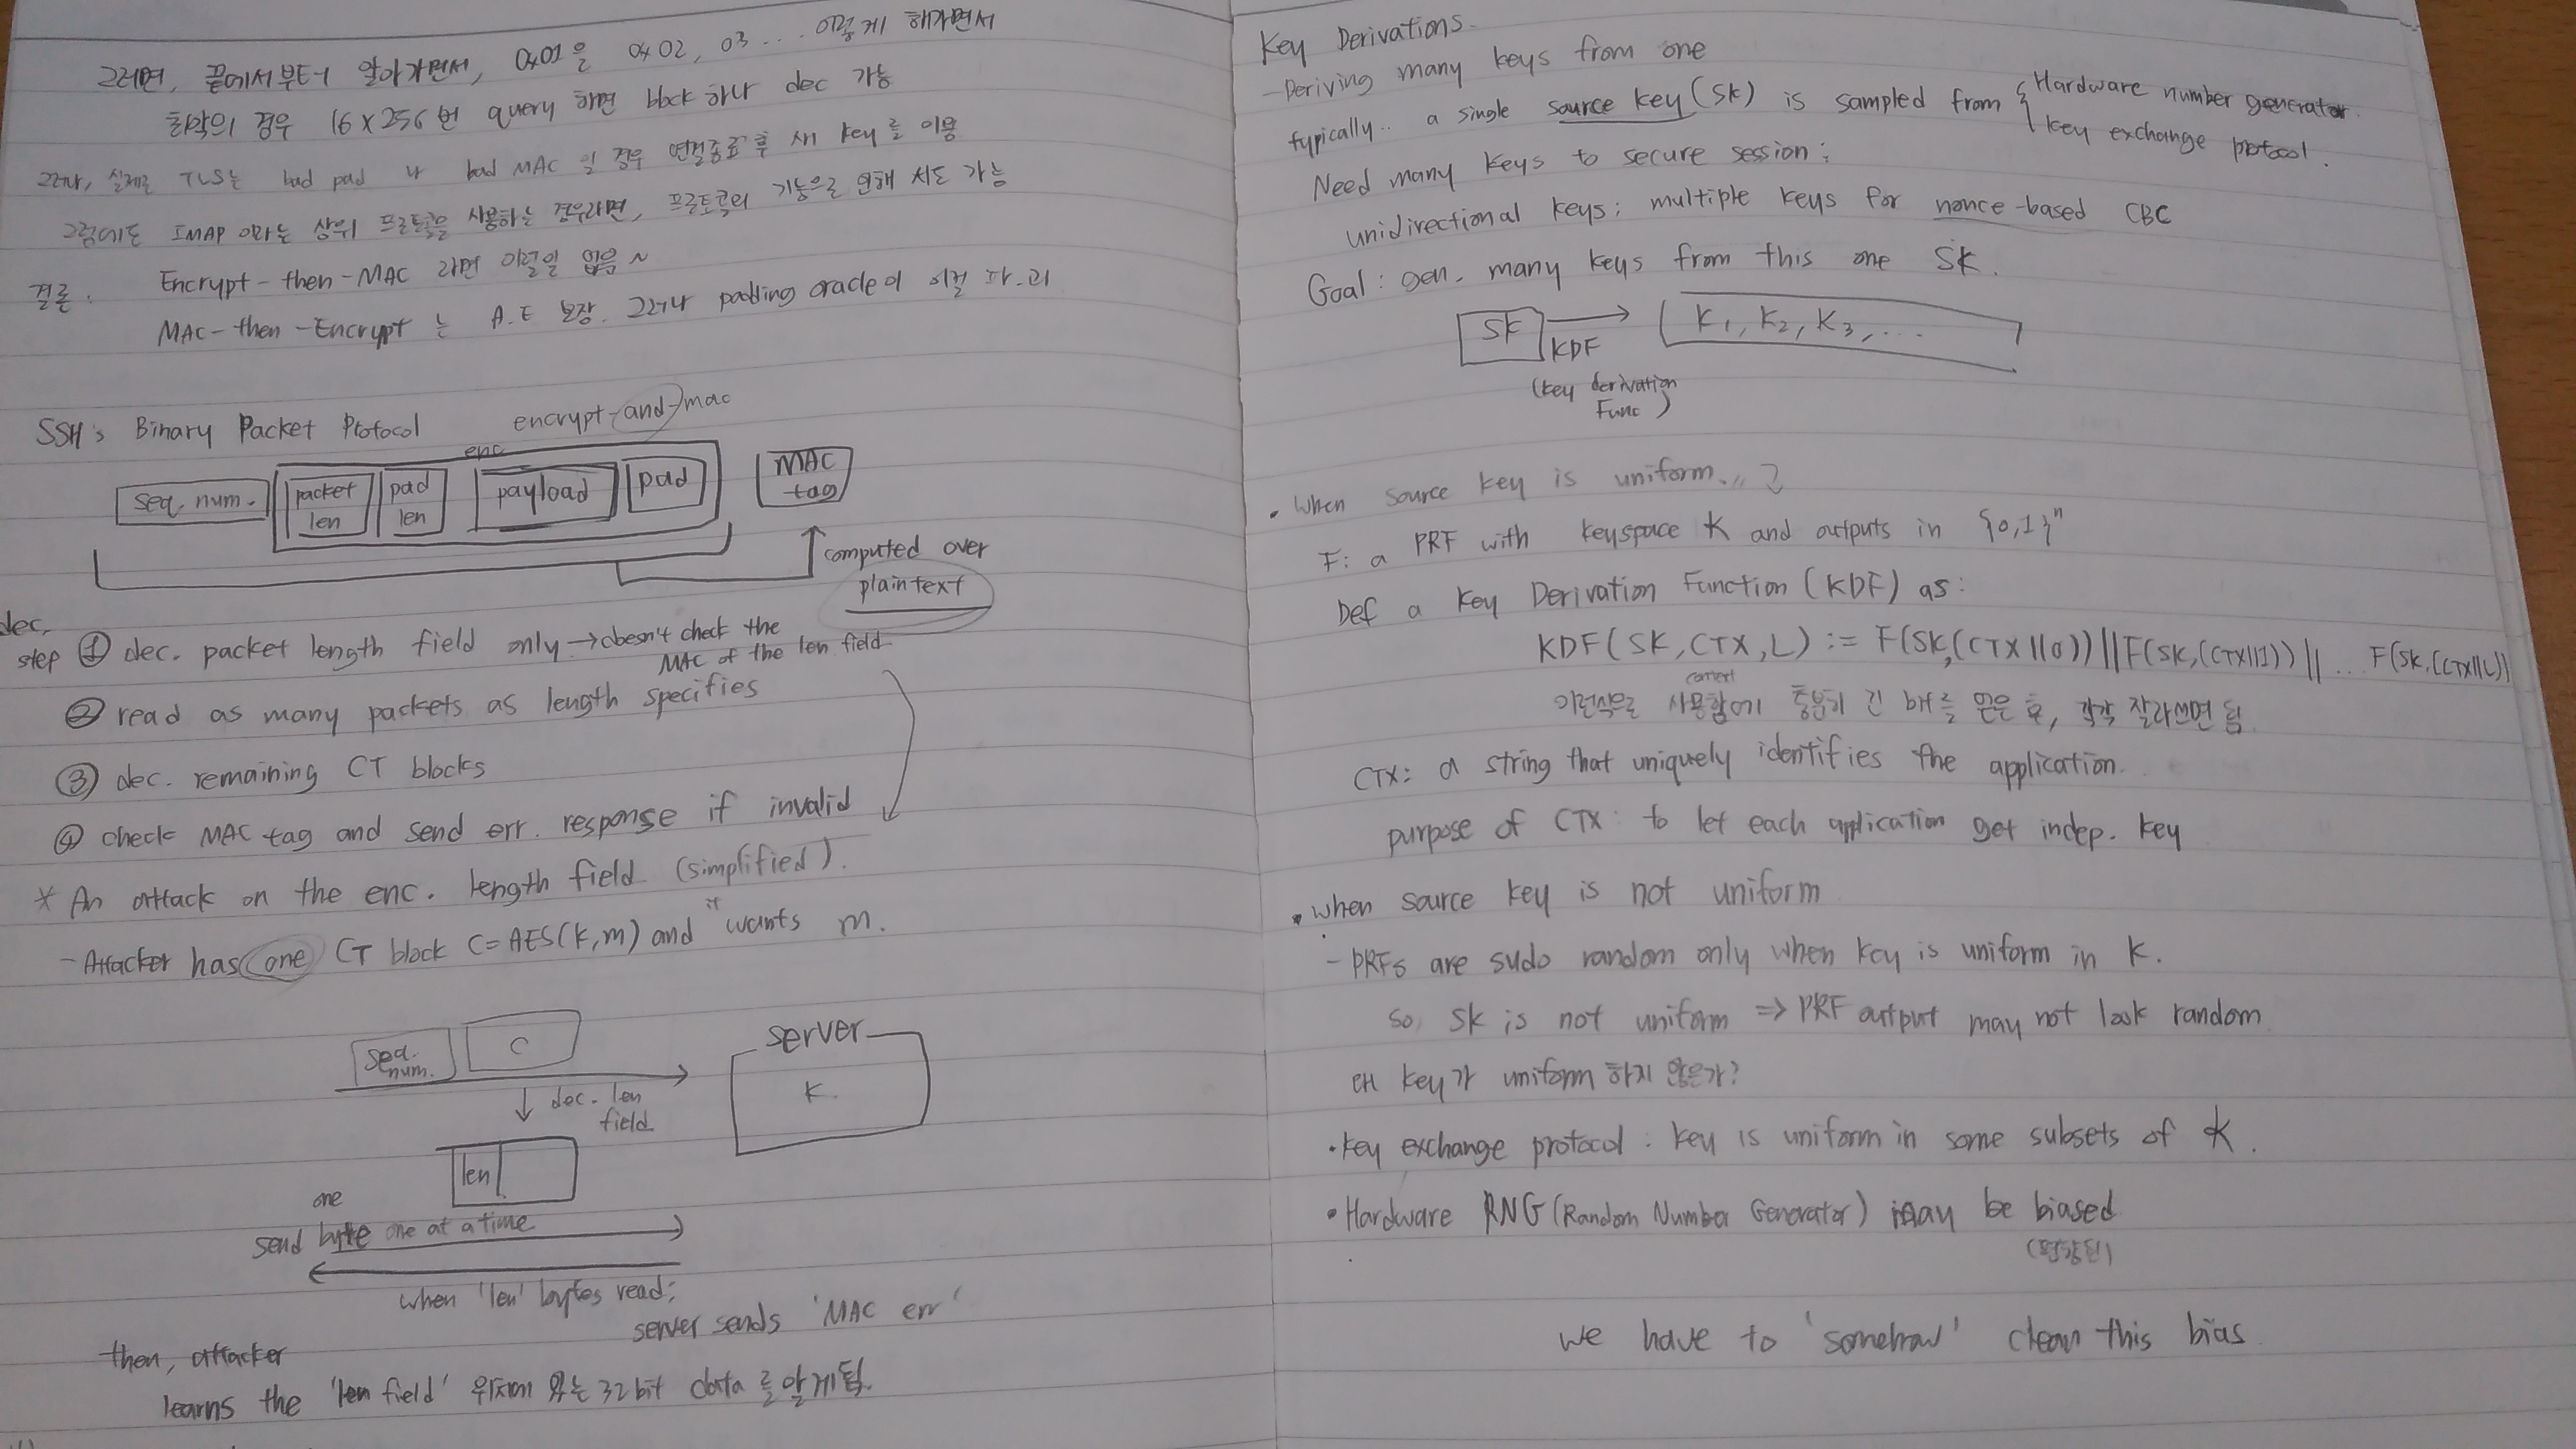 그러면, 끝에서부터 알아가면서, 0x01을 0x02, 03... 이렇게 해가면서
최악의 경우 16 x 256번 query 하면 block 하나 dec 가능
그러나, 실제로 TLS는 bad pad 나 bad MAC 일 경우 연결종료 후 새 key를 이용
그럼에도 IMAP 이라는 상위 프로토콜을 사용하는 경우라면, 프로토콜의 기능으로 인해 시도 가능
결론: Encrypt-then-MAC 라면 이럴일 없음~
MAC-then-Encrypt 는 A.E 보장. 그러나 padding oracle이 이걸 파.괴
SSH's Binary Packet Protocol encrypt-and-mac
enc
seq. num. packet len pad len payload pad MAC tag
computed over
plaintext
dec.
step ① dec. packet length field only → doesn't check the
MAC of the len field
② read as many packets as length specifies
③ dec. remaining CT blocks
④ check MAC tag and send err. response if invalid
* An attack on the enc. length field (simplified).
- Attacker has one CT block C = AES(k,m) and it wants m.
seq. num. C
server
k
dec. len
field
len
one
send byte one at a time
when 'len' bytes read;
server sends 'MAC err'
then, attacker
learns the 'len field' 위치에 있는 32bit data를 알게됨.
Key Derivations
- Deriving many keys from one
typically.. a single source key (SK) is sampled from { Hardware number generator.
key exchange protocol.
Need many keys to secure session;
unidirectional keys; multiple keys for nonce-based CBC
Goal: gen. many keys from this one SK.
SK → K1, K2, K3, ...
KDF
(key derivation
Func)
• When source key is uniform..
F: a PRF with keyspace K and outputs in {0,1}ⁿ
Def a Key Derivation Function (KDF) as:
KDF(SK, CTX, L) := F(SK,(CTX||0)) || F(SK,(CTX||1)) || ... F(SK,(CTX||L))
이런식으로 사용함에 충분히 긴 bit를 얻은 후, 각각 잘라쓰면 됨
CTX: a string that uniquely identifies the application.
purpose of CTX: to let each application get indep. key
• when source key is not uniform
- PRFs are sudo random only when key is uniform in K.
so, SK is not uniform => PRF output may not look random
왜 key가 uniform 하지 않은가?
• key exchange protocol: key is uniform in some subsets of K.
• Hardware RNG (Random Number Generator) may be biased
(편향된)
we have to 'somehow' clean this bias